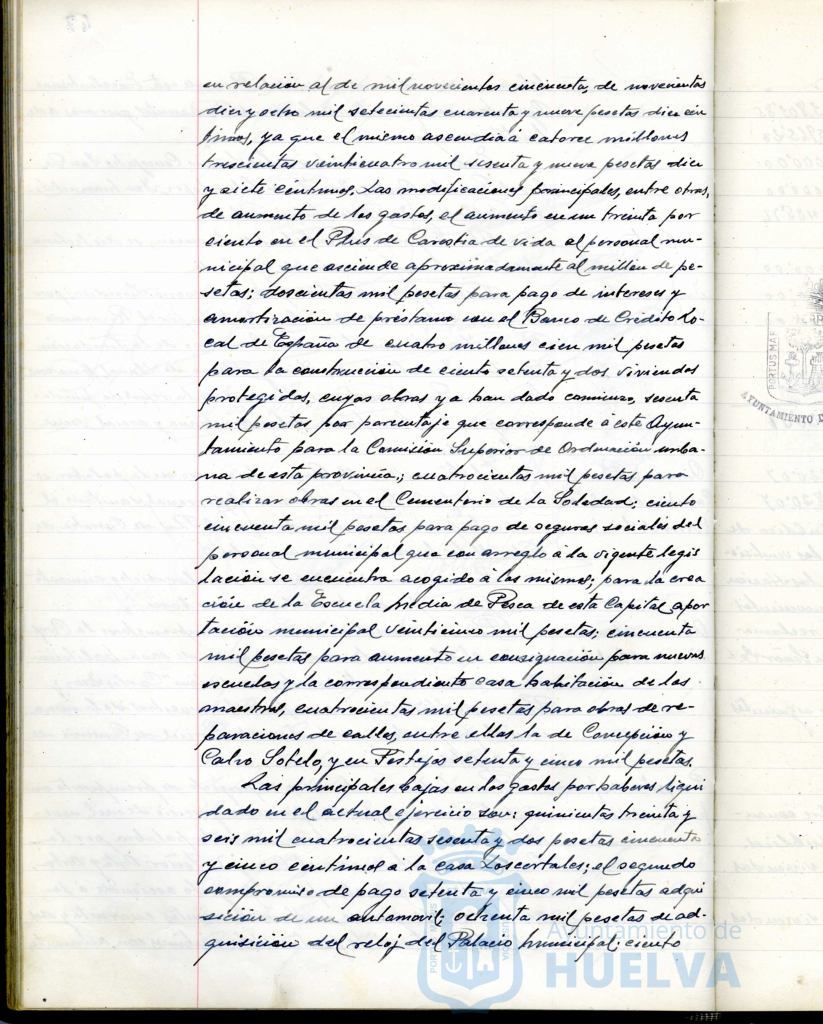 en relación al de mil novecientos cincuenta, de novecientas
diez y ocho mil setecientas cuarenta y nueve pesetas diez cén
timos, ya que el mismo ascendia á catorce millones
trescientas veinticuatro mil sesenta y nueve pesetas diez
y siete céntimos. Las modificaciones principales, entre otras,
de aumento de los gastos, el aumento en un treinta por
ciento en el Plus de Carestia de vida al personal mu-
nicipal que asciende aproximadamente al millón de pe-
setas; doscientas mil pesetas para pago de intereses y
amortización de préstamo con el Banco de Crédito Lo-
cal de España de cuatro millones cien mil pesetas
para la construcción de ciento setenta y dos viviendas
protegidas, cuyas obras ya han dado comienzo, sesenta
mil pesetas por porcentaje que corresponde á este Ayun-
tamiento para la Comisión Superior de Ordenación urba-
na de esta provincia; cuatrocientas mil pesetas para
realizar obras en el Cementerio de la Soledad; ciento
cincuenta mil pesetas para pago de seguros sociales del
personal municipal que con arreglo á la vigente legis
lación se encuentra acogido á los mismos; para la crea
ción de la Escuela Media de Pesca de esta Capital apor
tación municipal veinticinco mil pesetas; cincuenta
mil pesetas para aumento en consignación para nuevas
escuelas y la correspondiente casa habitación de los
maestros, cuatrocientas mil pesetas para obras de re-
paraciones de calles, entre ellas la de Concepción y
Calvo Sotelo, y en Festejos setenta y cinco mil pesetas.
Las principales bajas en los gastos por haberes liqui
dado en el actual ejercicio son: quinientas treinta y
seis mil cuatrocientas sesenta y dos pesetas cincuenta
y cinco céntimos á la casa Loscertales; el segundo
compromiso de pago setenta y cinco mil pesetas adqui
sición de un automóvil; ochenta mil pesetas de ad-
quisición del reloj del Palacio Municipal; ciento
PORTUS MAR
AYUNTAMIENTO D
Ayuntamiento de
HUELVA